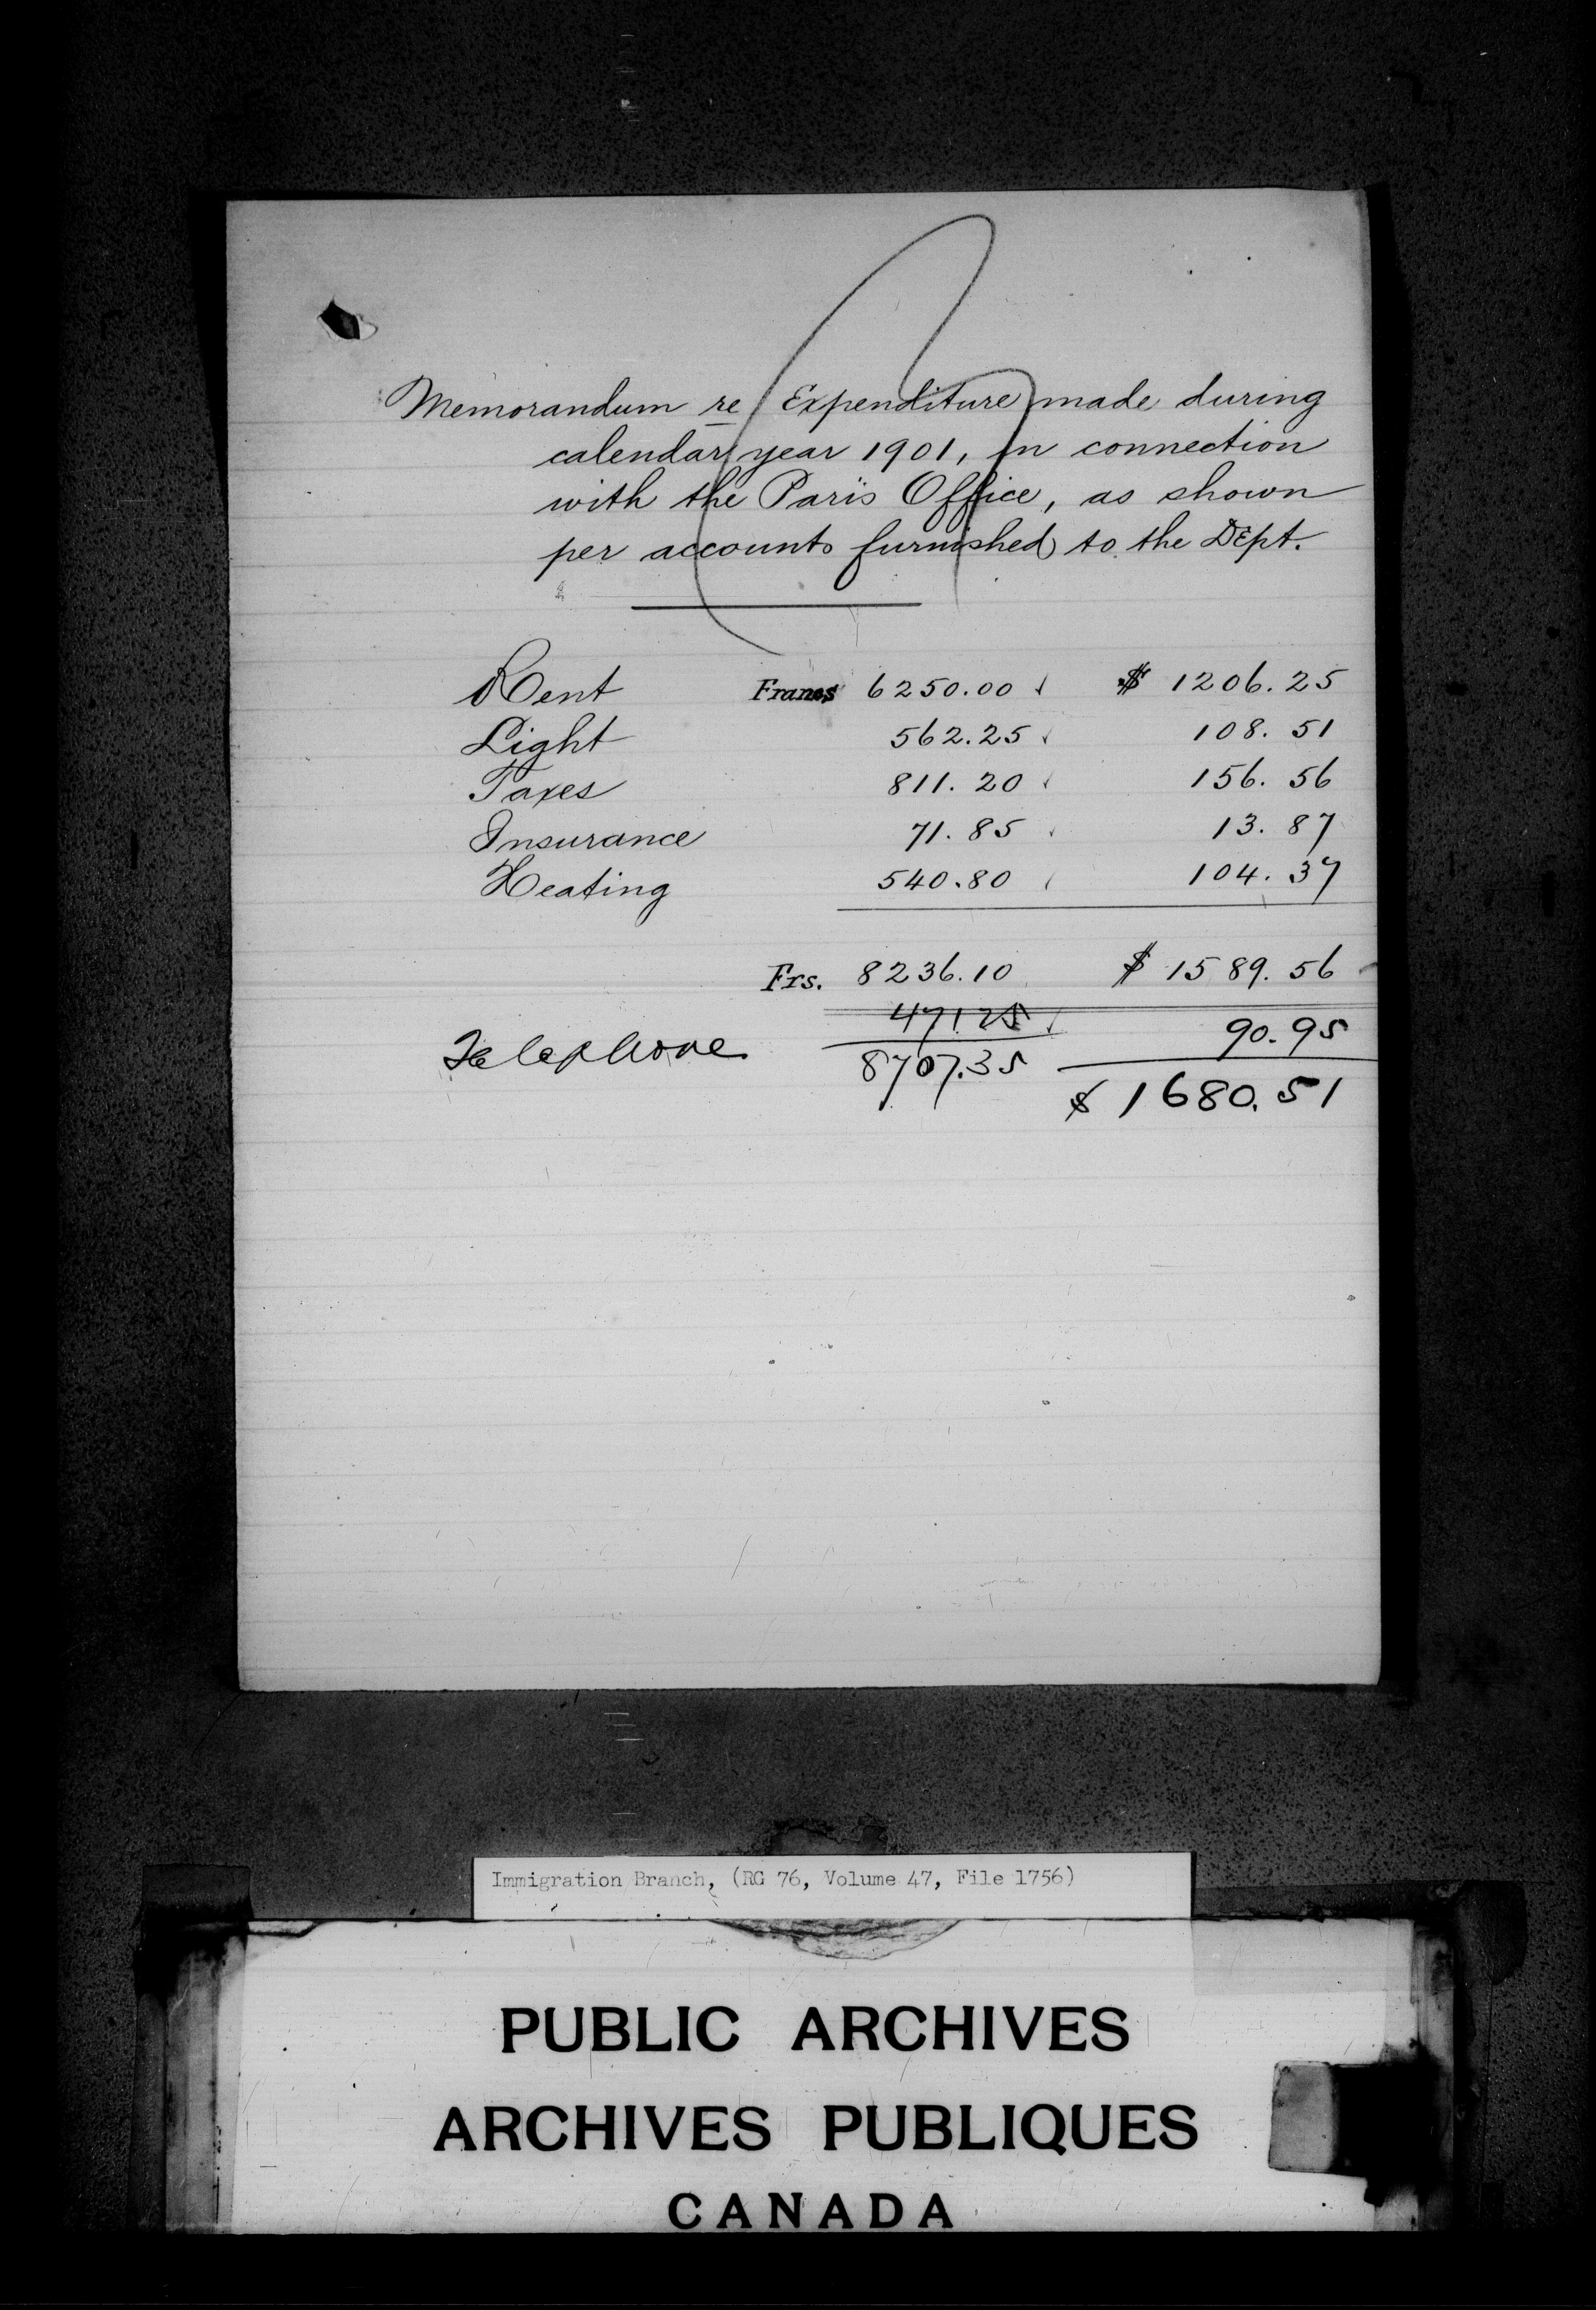 Memorandum re Expenditure made during
calendar year 1901, in connection
with the Paris Office, as shown
per accounts furnished to the DEpt.
Rent Francs 6250.00 ✓ $ 1206.25
Light 562.25 ✓ 108.51
Taxes 811.20 ✓ 156.56
Insurance 71.85 ✓ 13.87
Heating 540.80 ✓ 104.37
Frs. 8236.10 $ 1589.56
Telephone 471.25 ✓ 90.95
8707.35 $ 1680.51
Immigration Branch, (RG 76, Volume 47, File 1756)
PUBLIC ARCHIVES
ARCHIVES PUBLIQUES
CANADA